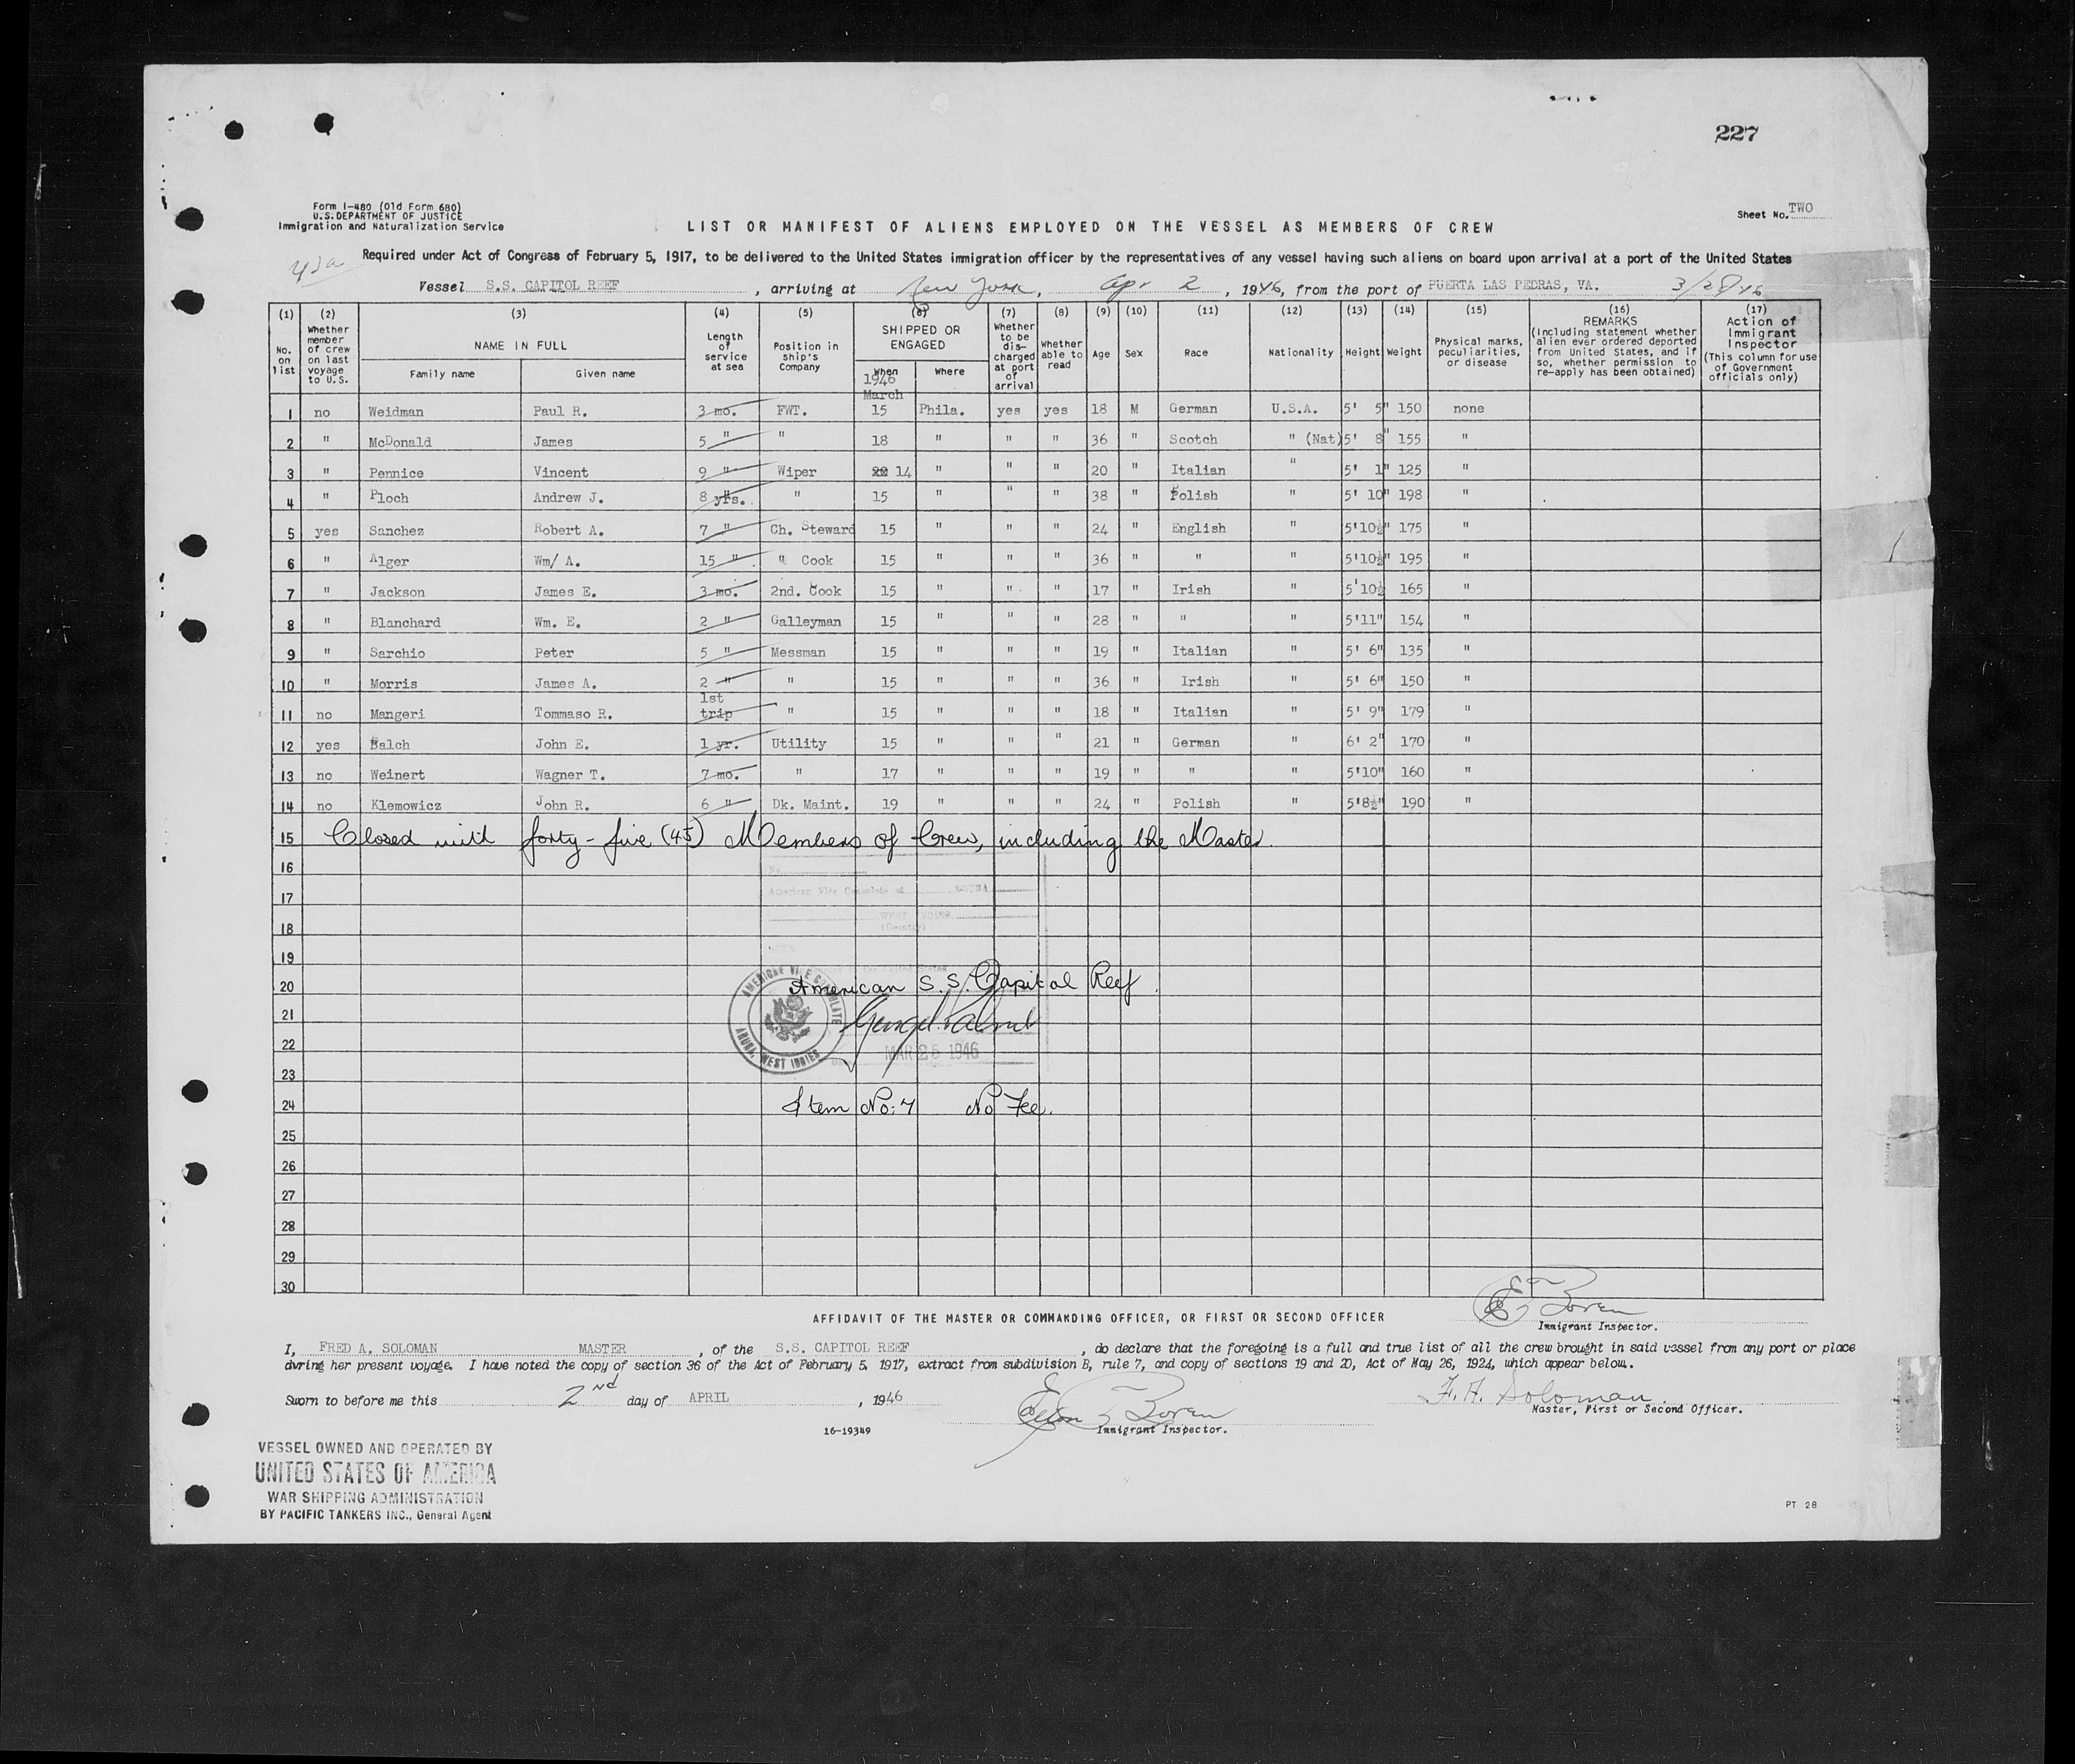 227
Form I-480 (Old Form 680)
U.S. DEPARTMENT OF JUSTICE
Immigration and Naturalization Service
Sheet No. TWO
LIST OR MANIFEST OF ALIENS EMPLOYED ON THE VESSEL AS MEMBERS OF CREW
Required under Act of Congress of February 5, 1917, to be delivered to the United States immigration officer by the representatives of any vessel having such aliens on board upon arrival at a port of the United States
Vessel S.S. CAPITOL REEF, arriving at New York, Apr 2, 1946, from the port of PUERTA LAS PEDRAS, VA.
(1) (2) (3) (4) (5) (6) (7) (8) (9) (10) (11) (12) (13) (14) (15) (16) (17)
No. on list
Whether member of crew on last voyage to U.S.
NAME IN FULL
Family name Given name
Length of service at sea
Position in ship's Company
SHIPPED OR ENGAGED
When Where
1946
March
Whether to be discharged at port of arrival
Whether able to read
Age
Sex
Race
Nationality
Height
Weight
Physical marks, peculiarities, or disease
REMARKS (Including statement whether alien ever ordered deported from United States, and if so, whether permission to re-apply has been obtained)
Action of Immigrant Inspector (This column for use of Government officials only)
1 no Weidman Paul R. 3 mo. FWT. 15 Phila. yes yes 18 M German U.S.A. 5' 5" 150 none
2 " McDonald James 5 " " 18 " " " 36 " Scotch " (Nat) 5' 8" 155 "
3 " Pennice Vincent 9 " Wiper 20 14 " " " 20 " Italian " 5' 1" 125 "
4 " Ploch Andrew J. 8 yrs. " 15 " " " 38 " Polish " 5' 10" 198 "
5 yes Sanchez Robert A. 7 " Ch. Steward 15 " " " 24 " English " 5'10½" 175 "
6 " Alger Wm/ A. 15 " " Cook 15 " " " 36 " " " 5'10½" 195 "
7 " Jackson James E. 3 mo. 2nd. Cook 15 " " " 17 " Irish " 5'10½ 165 "
8 " Blanchard Wm. E. 2 " Galleyman 15 " " " 28 " " " 5'11" 154 "
9 " Sarchio Peter 5 " Messman 15 " " " 19 " Italian " 5' 6" 135 "
10 " Morris James A. 2 " " 15 " " " 36 " Irish " 5' 6" 150 "
11 no Mangeri Tommaso R. 1st trip " 15 " " " 18 " Italian " 5' 9" 179 "
12 yes Balch John E. 1 yr. Utility 15 " " " 21 " German " 6' 2" 170 "
13 no Weinert Wagner T. 7 mo. " 17 " " " 19 " " " 5'10" 160 "
14 no Klemowicz John R. 6 " Dk. Maint. 19 " " " 24 " Polish " 5'8½" 190 "
15 Closed with forty-five (45) Members of Crew, including the Master.
16
American Vice Consulate at
17
WEST INDIES
(Country)
18
19
20 American S.S. Capitol Reef
AMERICAN VICE CONSULATE
ARUBA, WEST INDIES
21
22 MAR 25 1946
23
24 Item No: 7 No Fee.
25
26
27
28
29
30
Immigrant Inspector.
AFFIDAVIT OF THE MASTER OR COMMANDING OFFICER, OR FIRST OR SECOND OFFICER
I, FRED A. SOLOMAN MASTER, of the S.S. CAPITOL REEF, do declare that the foregoing is a full and true list of all the crew brought in said vessel from any port or place
during her present voyage. I have noted the copy of section 36 of the Act of February 5, 1917, extract from subdivision B, rule 7, and copy of sections 19 and 20, Act of May 26, 1924, which appear below.
Sworn to before me this 2nd day of APRIL, 1946
F. A. Soloman
Master, First or Second Officer.
Immigrant Inspector.
16-19349
VESSEL OWNED AND OPERATED BY
UNITED STATES OF AMERICA
WAR SHIPPING ADMINISTRATION
BY PACIFIC TANKERS INC., General Agent
PT 28